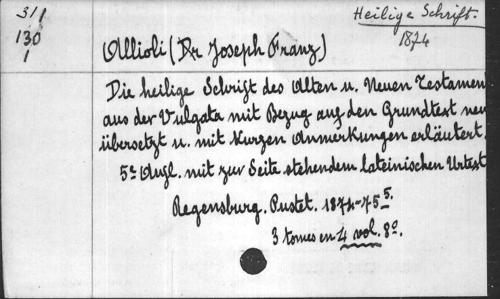 31/
130
1
Heilige Schrift.
1874
Allioli (Dr Joseph Franz)
Die heilige Schrift des Alten u. Neuen Testamen
aus der Vulgata mit Bezug auf den Grundtext neu
übersetzt u. mit kurzen Anmerkungen erläutert.
5e Aufl. mit zur Seite stehendem lateinischen Urtext
Regensburg. Pustet. 1874-75
3 tomes en 4 vol. 8º.